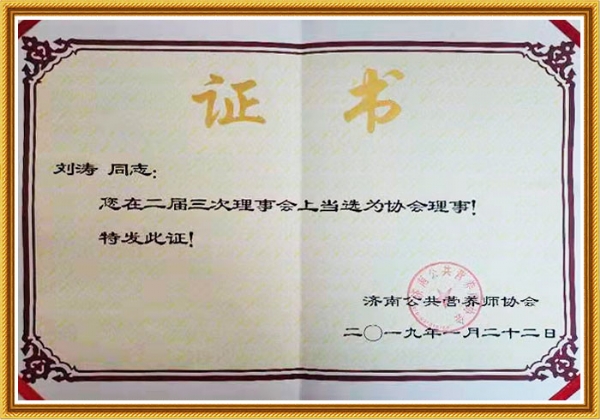 证 书
刘涛 同志:
您在二届三次理事会上当选为协会理事!
特发此证!
济南公共营养师协会
济南公共营养师协会
二〇一九年一月二十二日